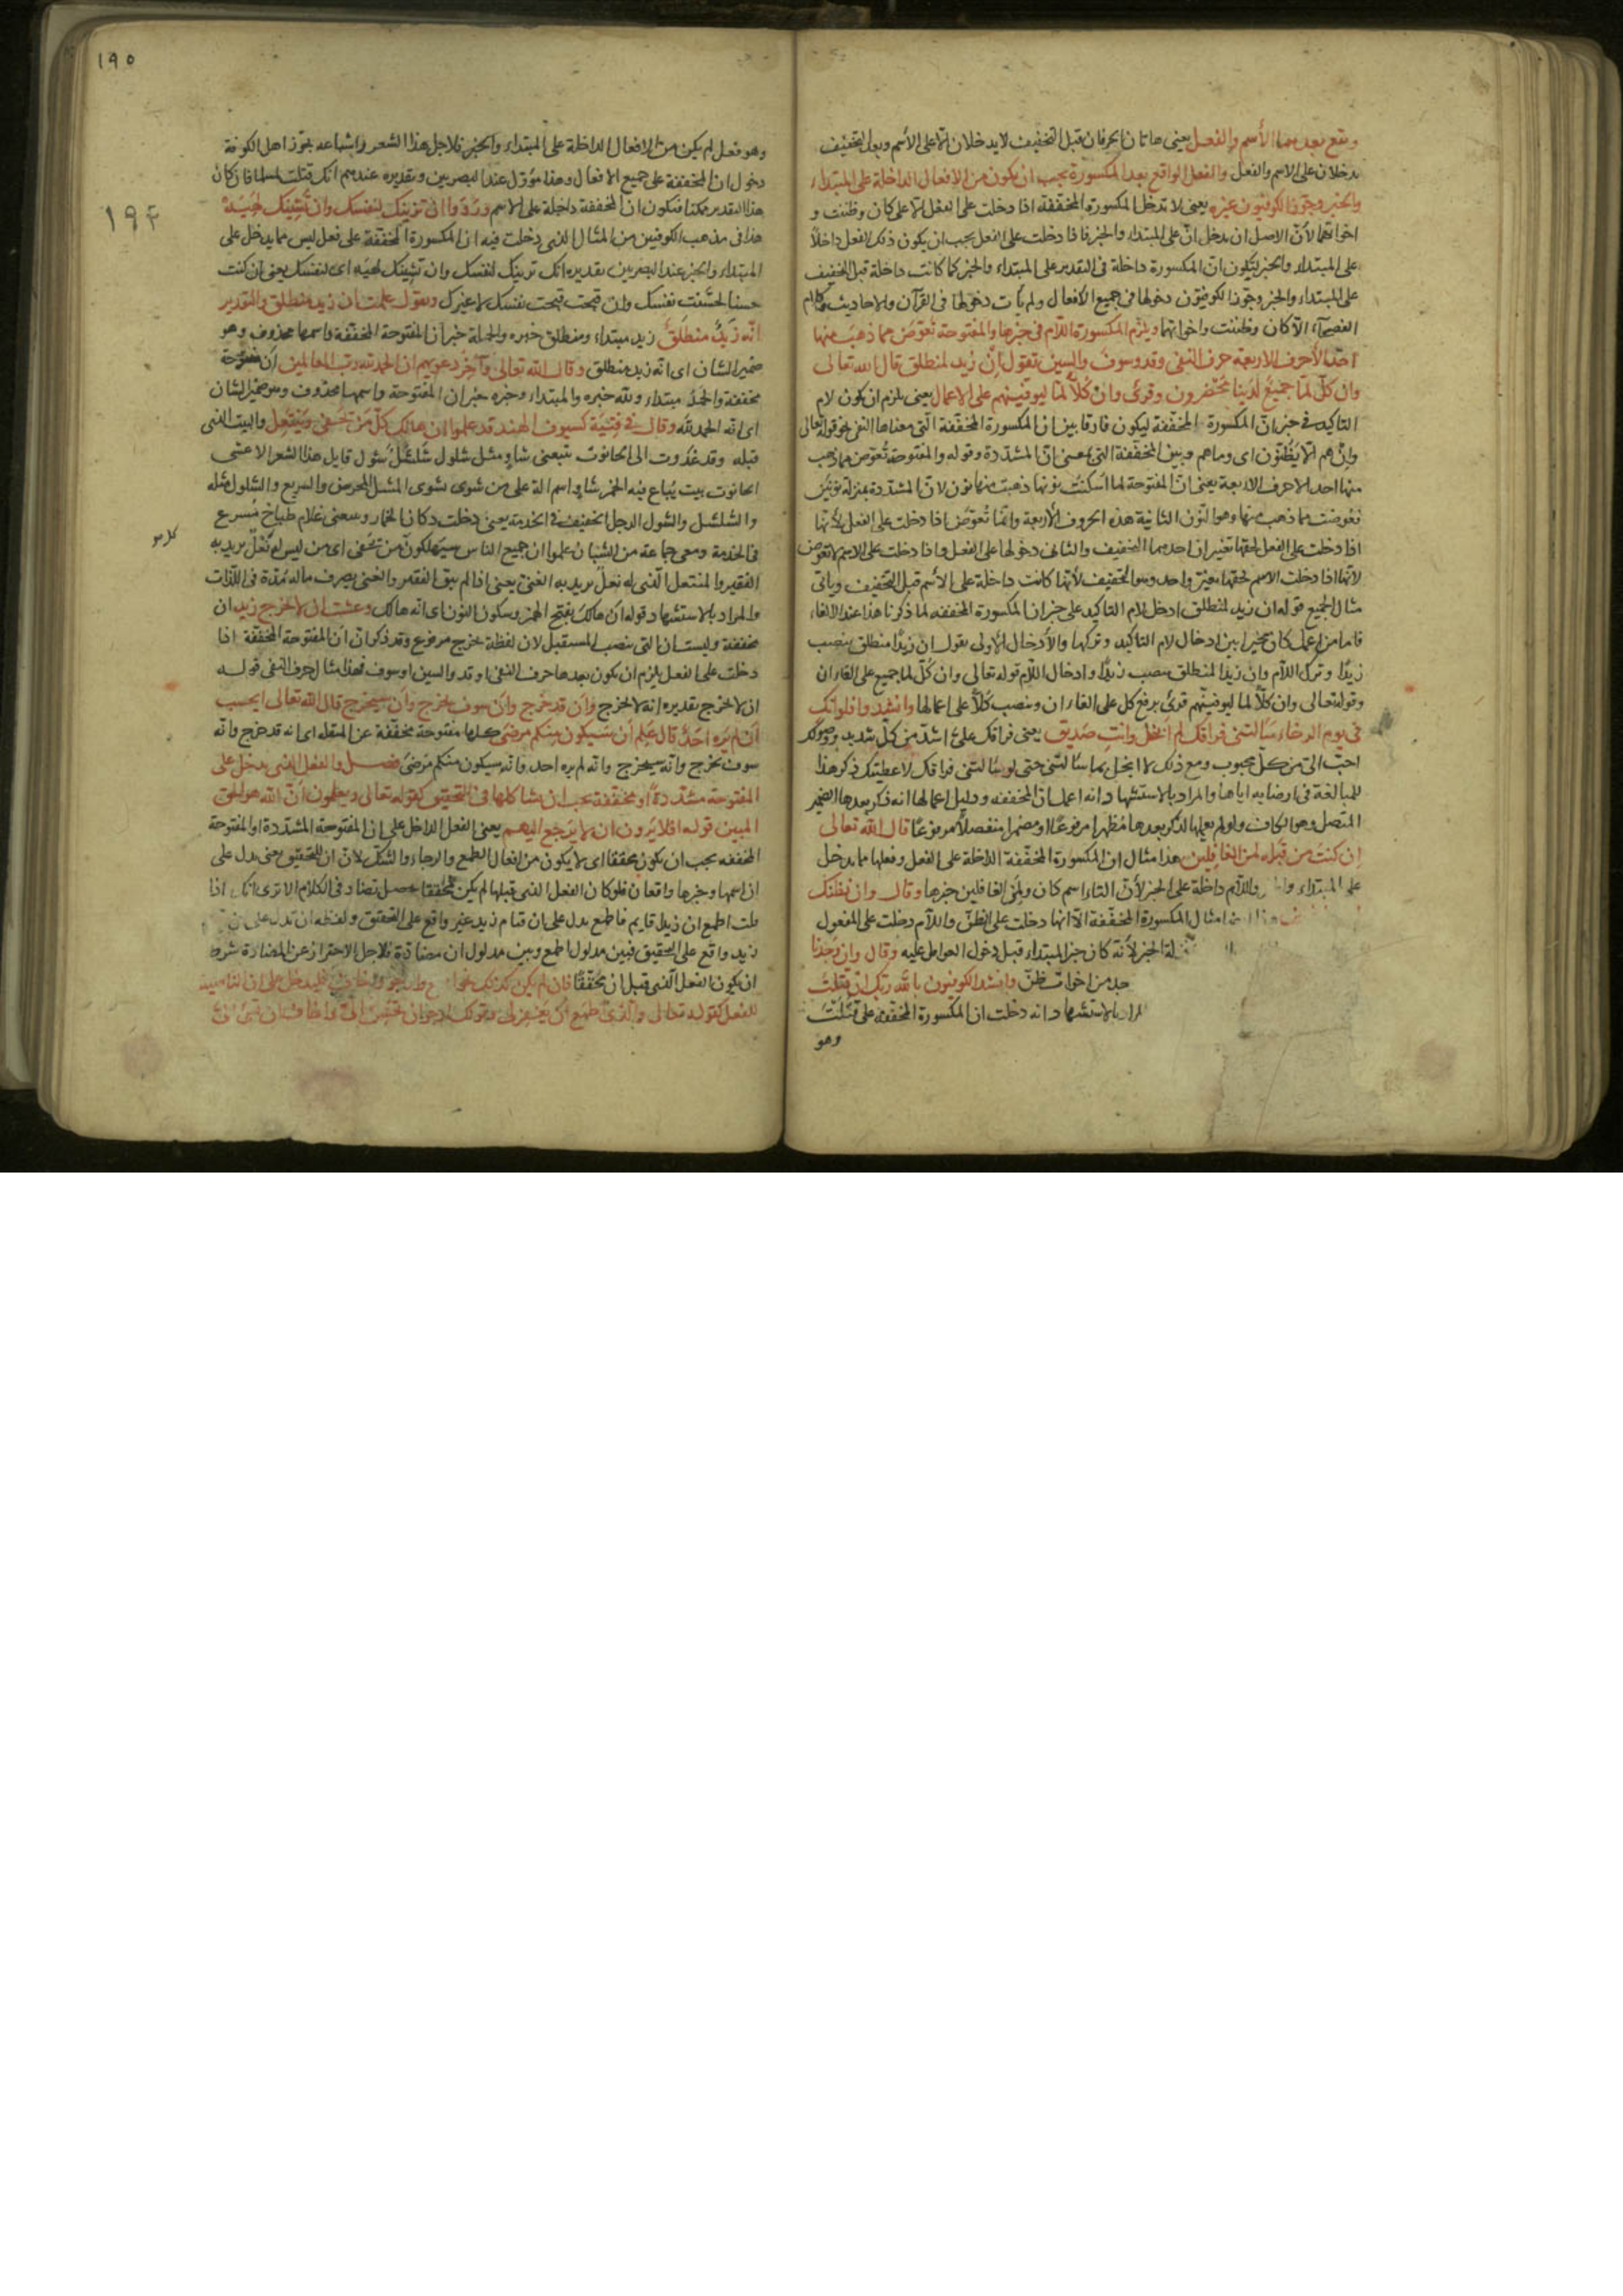 ويقع بعدهما الأسم والفعل يعنى هاتان الحرفان قبل التخفيف لا يدخلان الا على الأسم وبعد التخفيف
يدخلان على الاسم والفعل والفعل الواقع بعد المكسورة يجب ان يكون من الافعال الداخلة على المبتداء
والخبر وجوّز الكوفيون غيره يعنى لا تدخل المكسورة المخففة اذا دخلت على الفعل الا على كان وظننت و
اخواتهما لأنّ الاصل ان يدخل انّ على المبتداء والخبر فاذا دخلت على الفعل يجب ان يكون ذلك الفعل داخلاً
على المبتداء والخبر ليكون انّ المكسورة داخلة فى التقدير على المبتداء والخبر كما كانت داخلة قبل التخفيف
على المبتداء والخبر وجوّز الكوفيون دخولها فى جميع الأفعال ولم يأت دخولها فى القرآن والاحاديث وكلام
الفصحآء الّا كان وظننت واخواتهما ويلزم المكسورة اللّام فى خبرها والمفتوحة تعوّض مما ذهب منها
احد الأحرف الاربعة حرف النفى وقد وسوف والسين تقول إنْ زيد لمنطلق قال الله تعالى
وان كلّ لمّا جميعٌ لدينا محضرون وقرئ وانْ كُلاًّ لمّا ليوفّينهم على الاعمال يعنى يلزم ان يكون لام
التاكيد فى خبر انّ المكسورة المخففة ليكون فارقا بين ان المكسورة المخففة التى معناها النفى نحو قوله تعالى
وانْ هم الّا يظنّون اى وما هم وبين المخففة التى بمعنى انّ المشدّدة وقوله والمفتوحة تُعوّض مما ذهب
منها احد الاحرف الاربعة يعنى انّ المفتوحة لما اُسكنت نونها ذهبت منها نون لانّ المشدّدة بمنزلة نونين
فعوضت مما ذهب منها وهو النّون الثانية هذه الحروف الأربعة وانّما تُعوّض اذا دخلت على الفعل لأنّها
اذا دخلت على الفعل لحقها تغييران احدهما التخفيف والثانى دخولها على الفعل واذا دخلت على الاسم لا تعوض
لأنّها اذا دخلت الاسم لحقها تغيير واحد وهو التخفيف لأنّها كانت داخلة على الأسم قبل التخفيف وياتى
مثال الجميع قوله ان زيد لمنطلق ادخل لام التاكيد على خبر ان المكسورة المخففة لما ذكرنا هذا عند الالغاء
فاما من اعمل كان مخيرا بين ادخال لام التاكيد وتركها والأدخال الاولى يقول ان زيدًا منطلق بنصب
زيدًا وترك اللّام وان زيدًا لمنطلق بنصب زيدًا وادخال اللّام قوله تعالى وان كلّ لما جميع على الغاء ان
وقوله تعالى وان كلاًّ لما ليوفينّهم قرئ برفع كل على الغاء ان وبنصب كلاًّ على اعمالها وانشدوا فلو انّك
فى يوم الرخاء سالتنى فراقك لم أبخل وانتِ صديق يعنى فراقك علىّ اشدّ من كل شديد ووصولك
احبّ الىّ من كل محبوب ومع ذلك لا ابخل بما سألتنى حتى لو سالتنى فراقك لاعطيتك ذكر هذا
للمبالغة فى ارضايه اياها والمراد بالاستشهاد انه اعمل ان المخففه ودليل اعمالها انه ذكر بعدها الضمير
المتصل وهو الكاف ولو لم يعملها لذكر بعدها مظهرا مرفوعًا او مضمرا منفصلاً مرفوعًا قال الله تعالى
ان كنت من قبله لمن الغافلين هذا مثال ان المكسورة المخففة الداخلة على الفعل وفعلها مما يدخل
على المبتداء واللّام داخلة على الخبر لأنّ التاء اسم كان ولمن الغافلين خبرها وقال وان نظنك
امثال المكسورة المخففة الّا انها دخلت على الظنّ واللّام دخلت على المفعول
لة الخبر لأنّه كان خبر المبتداء قبل دخول العوامل عليه وقال وان وجدنا
من اخوات ظنّ وانشد الكوفيون بالله ربّك ان قتلت
بالاستشهاد انه دخلت ان المكسورة المخففة على قتلت
وهو
١٩٥
١٩٤
وهو فعل لم يكن من الافعال الداخلة على المبتداء والخبر فلاجل هذا الشعر واشباهه يجوّز اهل الكوفة
دخول ان المخففة على جميع الافعال وهذا مؤوّل عند البصريين وتقديره عندهم انك قتلت لمسلما فان كان
هذا التقدير ممكنا فيكون ان المخففة داخلة على الاسم وردّوا ان تزينك لنفسك وان تشينك لهيه
هذا فى مذهب الكوفيين من المثال الذى دخلت فيه ان المكسورة المخففة على فعل ليس مما يدخل على
المبتداء والخبر عند البصريين تقديره انك تزينك لنفسك وان تشينك لهيه اى لنفسك يعنى ان كنت
حسنا لحسّنت نفسك وان قبحت قبحت نفسك لا غيرك وتقول علمت ان زيد منطلق والتقدير
انّه زيدٌ منطلقٌ زيد مبتداء ومنطلق خبره والجملة خبر ان المفتوحة المخففة واسمها محذوف وهو
ضمير الشان اى انّه زيد منطلق وقال الله تعالى وآخر دعويهم ان الحمد لله رب العالمين ان مفتوحة
مخففة والحمدُ مبتداء ولله خبره والمبتداء وخبره خبر ان المفتوحة واسمها محذوف وهو ضمير الشان
اى انّه الحمد لله وقال فى فتية كسيوف الهند قد علموا ان هالك كلّ من يحفى وينتعل والبيت الذى
قبله وقد غدوت الى الحانوت يتبعنى شاوٍ مشل شلول شلشل شول قايل هذا الشعر الاعشى
الحانوت بيت يُباع فيه الخمر شاوٍ اسم الة على من شوى يشوى المشل المحرص والسريع والشلول مثله
والشلشل والشول الرجل الخفيف فى الخدمة يعنى دخلت دكان الخمار ومعى غلام طباخ مسرع
فى الخدمة ومعى جماعة من الشبان علموا ان جميع الناس سيهلكون من يحفى اى من ليس له نعل يريد به
الفقير والمنتعل الّذى له نعل يريد به الغنىّ يعنى اذا لم يبق الفقير والغنى يصرف ماله مدّة فى اللّذات
والمراد بالاستشهاد قوله ان هالك بفتح الهمزة وسكون النون اى انّه هالك وعلمت ان لا يخرج زيد ان
مخففة وليست ان التى ينصب المستقبل لان لفظة يخرج مرفوع وقد ذكر ان ان المفتوحة المخففة اذا
دخلت على الفعل يلزم ان يكون بعدها حرف النفى او قد والسين او سوف فهذا مثال حرف النفى قوله
ان لا يخرج تقديره انه لا يخرج وان قد خرج وان سوف يخرج وان سيخرج قال الله تعالى ايحسب
ان لم يره احدٌ قال علم ان سيكون منكم مرضى كلها مفتوحة مخففة عن المثقلة اى انه قد خرج وانّه
سوف يخرج وانّه سيخرج وانه لم يره احد وانّه سيكون منكم مرضى فصل والفعل الذى يدخل على
المفتوحة مشدّدةً او مخففة يجب ان يشاكلها فى التحقيق كقوله تعالى ويعلمون انّ الله هو الحق
المبين قوله افلا يرون ان لا يرجع اليهم يعنى الفعل الداخل على ان المفتوحة المشدّدة او المفتوحة
المخففة يجب ان يكون محققا اى لا يكون من افعال الطمع والرجاء والشك لانّ ان للتحقيق يعنى يدل على
ان اسمها وخبرها واقعان فلو كان الفعل الذى قبلها لم يكن محققا يحصل تضاد فى الكلام الا ترى انك اذا
قلت اطمع ان زيدا قايم فاطمع يدل على ان قيام زيد غير واقع على التحقيق ولفظه ان تدل على
زيد واقع على التحقيق فبين مدلول اطمع وبين مدلول ان مضادّة فلاجل الاحتراز عن المضادة شرط
ان يكون الفعل الّذى قبل ان محقّقًا فان لم يكن كذلك نحو اطمع وارجو فليدخل على ان الناصبة
للفعل كقوله تعالى والّذى اطمع ان يغفر لى وقولك ارجو ان تحسن الىّ